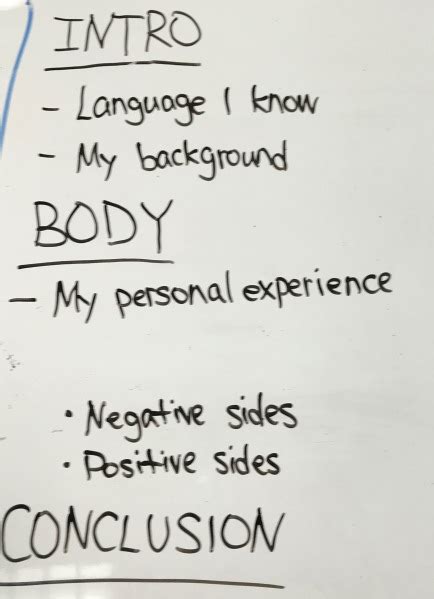 INTRO
- Language I know
- My background
BODY
- My personal experience
• Negative sides
• Positive sides
CONCLUSION